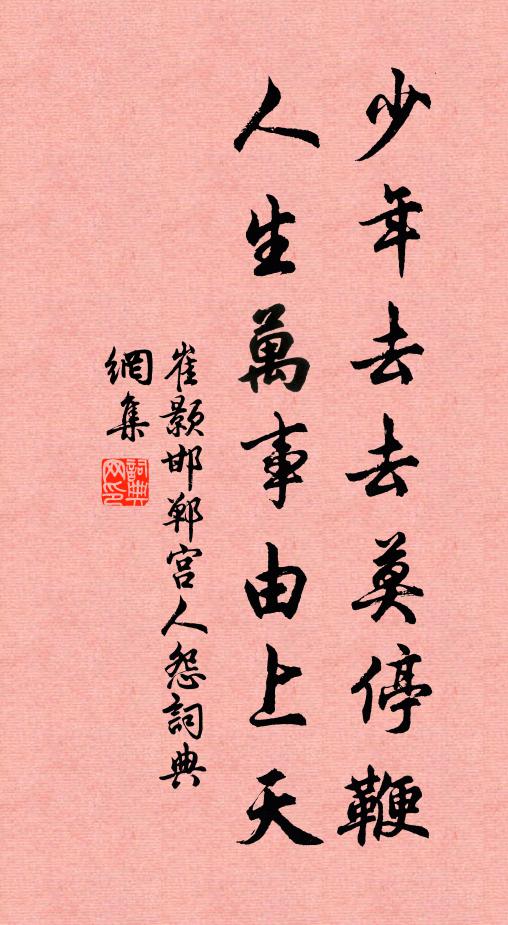 少年去去莫停鞭
人生萬事由上天
崔颢邯郸宫人怨詞典
網集
詞典网印